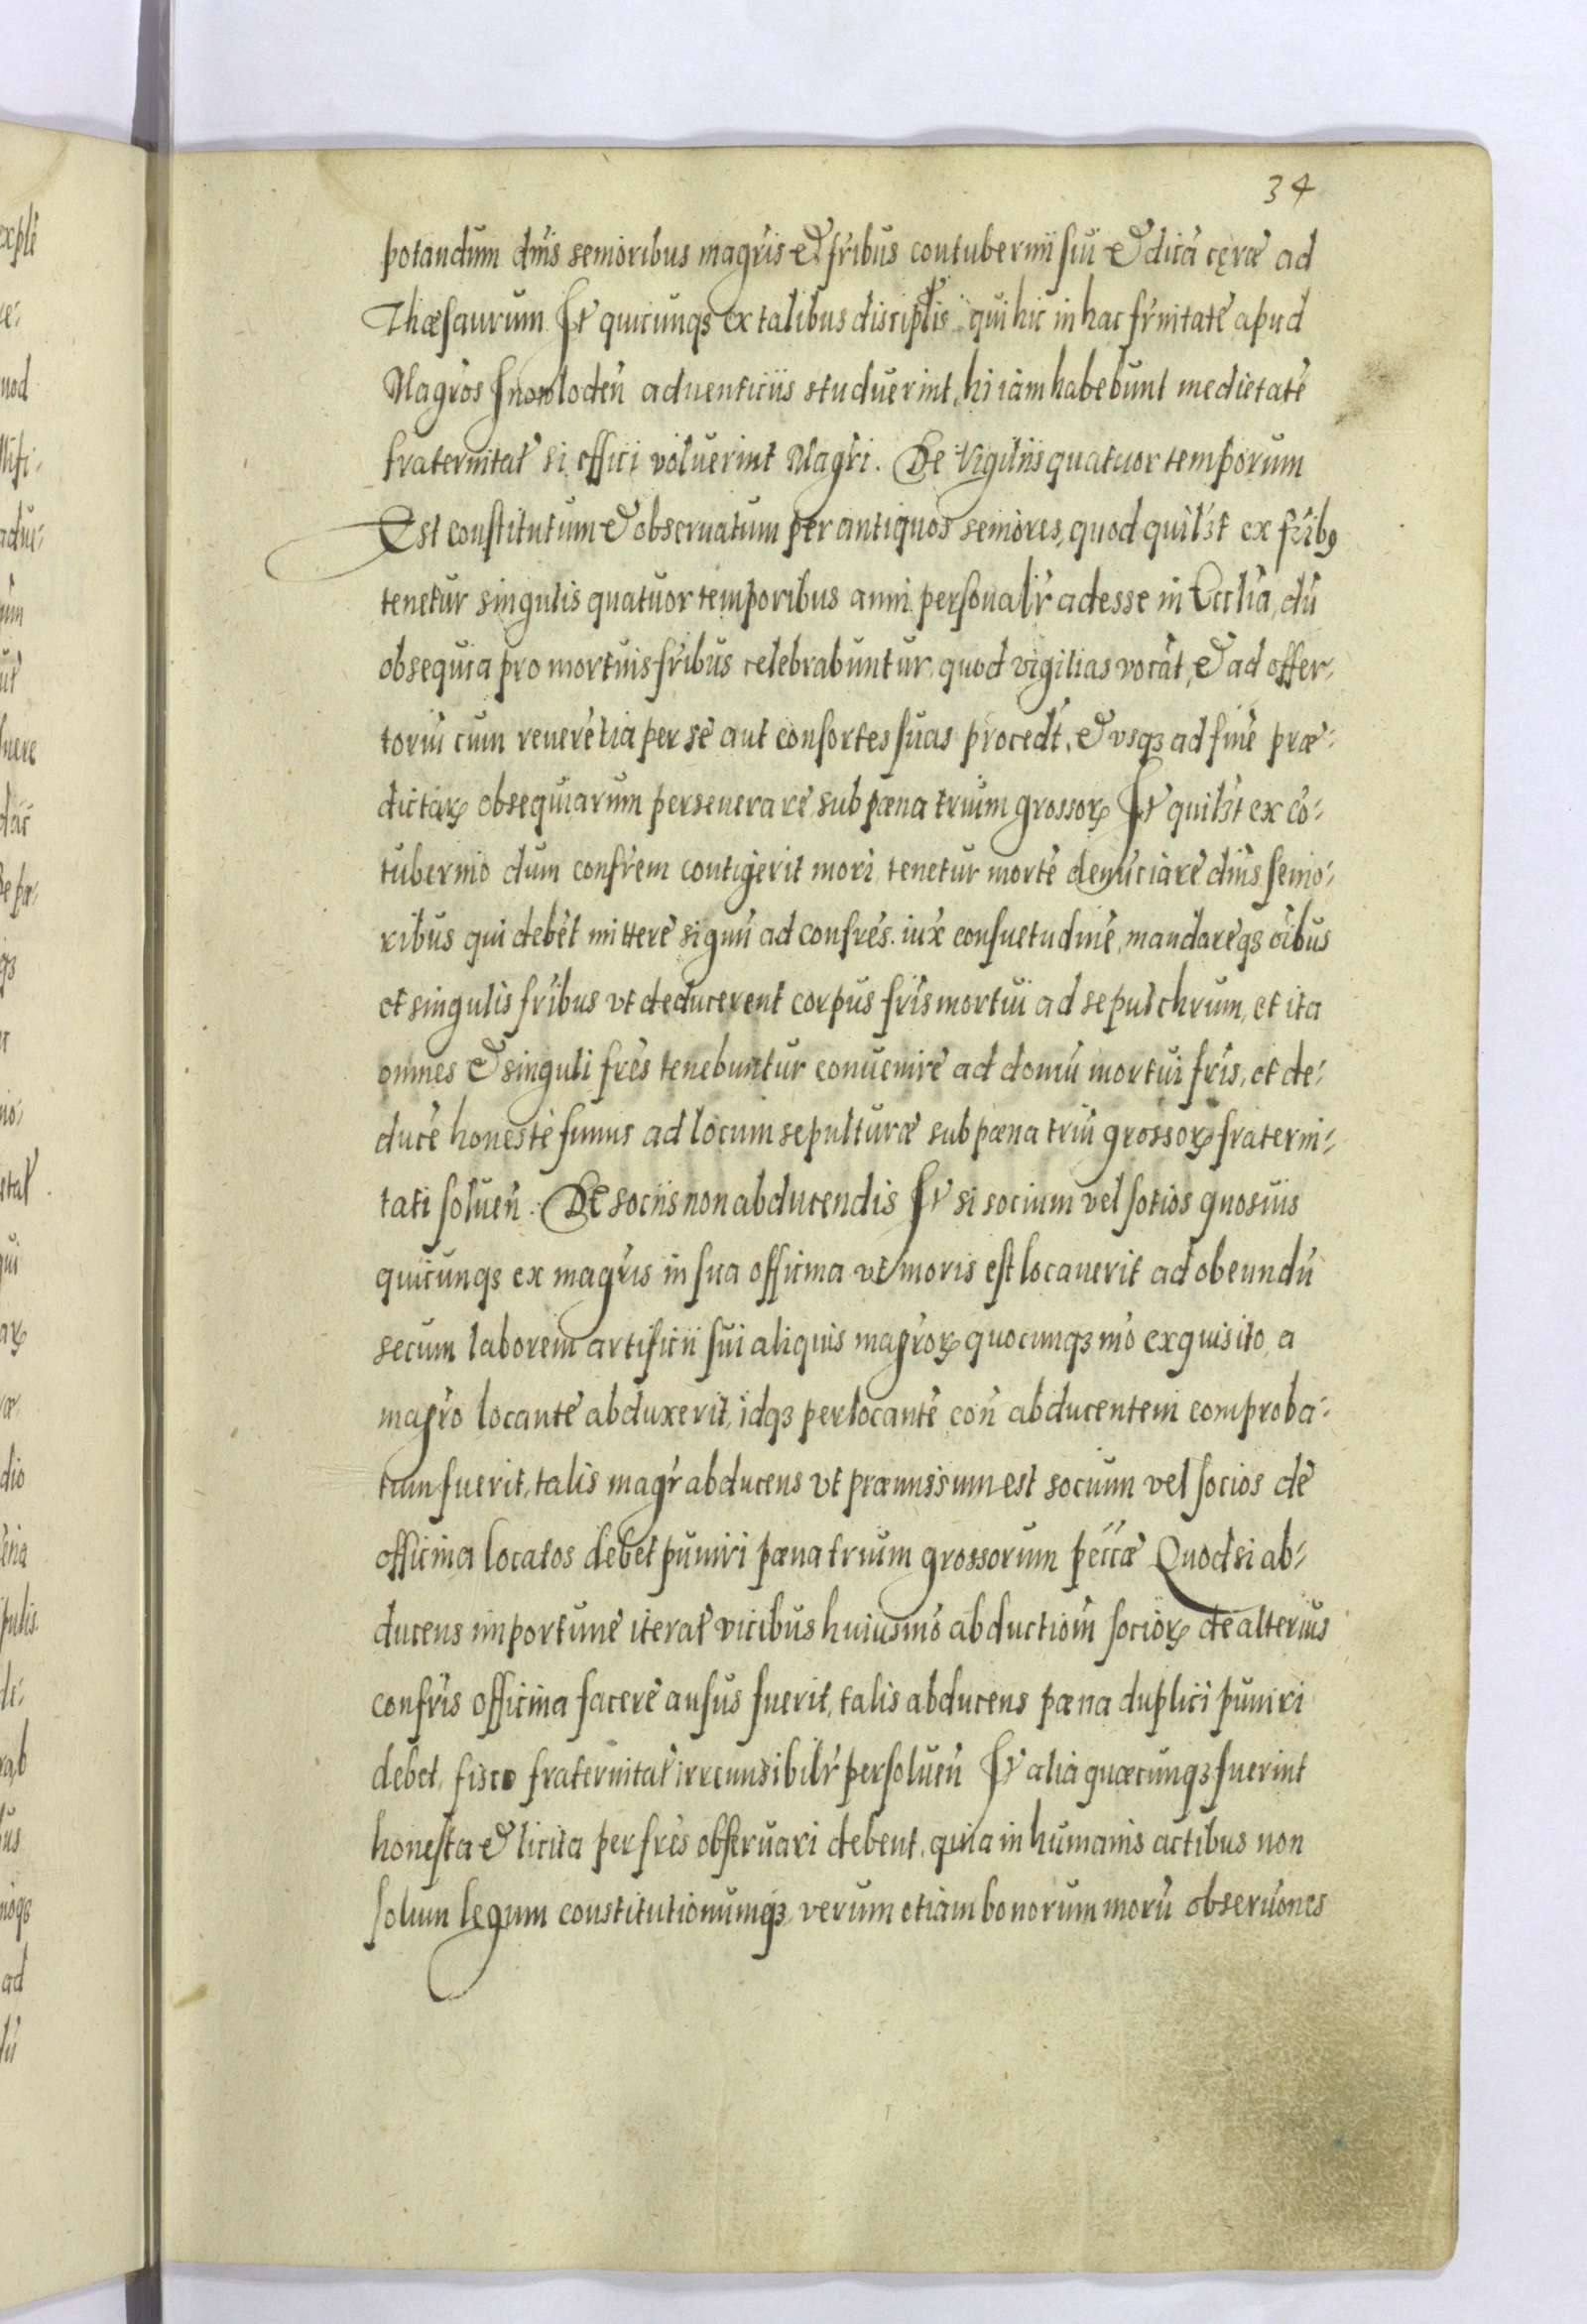 34
potandum dnis senioribus magris & fribus contubernii sui & dica cęræ ad
Thæsaurum It quicunqꝫ ex talibus disciplis qui hic in hac frnitate apud
Magros Inowloden aduenticiis studuerint, hi iam habebunt medietate
fraternitat si effici voluerint Magri. De Vigiliis quatuor temporum
Est constitutum & obseruatum per antiquos seniores, quod quilꝫt ex fribꝯ
tenetur singulis quatuor temporibus anni personalir adesse in Ecclia, dū
obsequia pro mortuis fribus celebrabuntur quod vigilias vocāt, & ad offer-
toriū cum reuerētia per se aut consortes suas procedt, & vsqꝫ ad finē præ-
dictaꝝ obsequiarum perseuerare sub pæna trium grossoꝝ It quilꝫt ex cō-
tubernio dum confrem contigerit mori tenetur mortē denūciare dnis senio-
ribus qui debēt mittere signū ad confres iux consuetudinē, mandareqꝫ oībus
et singulis fribus vt deducerent corpus fris mortui ad sepulchrum, et ita
omnes & singuli fres tenebuntur conuenire ad domū mortui fris, et de-
duce honeste funus ad locum sepulturæ sub pæna triū grossoꝝ fraterni-
tati soluen̄. De sociis non abducendis It si socium vel sotios quosuis
quicunqꝫ ex magris in sua officina vt moris est locauerit ad obeundū
secum laborem artificii sui aliquis magroꝝ quocunqꝫ mō exquisito, a
magro locante abduxerit, idqꝫ per locantē con̄ abducentem comproba-
tum fuerit, talis magr abducens vt præmissum est socium vel socios de
officina locatos debet puniri pæna trium grossorum peccæ Quodsi ab-
ducens importune iterat vicibus huiusmō abductiom socioꝝ de alterius
confris officina facere ausus fuerit, talis abducens pæna duplici puniri
debet, fisco fraternitat irremisibilr persoluen̄ It alia quæcunqꝫ fuerint
honesta & licita per fres obseruari debent, quia in humanis actibus non
solum legum constitutionumqꝫ verum etiam bonorum morū obseruones